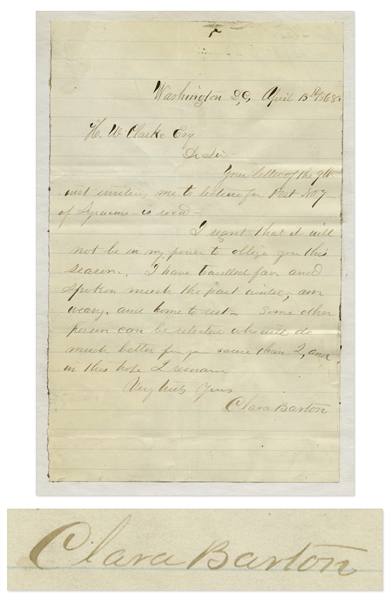 Washington D.C. April 13th 1868
H. W. Clarke Esq
Dr Sir
Your letter of the 9th
inst inviting me to lecture for Post No 7
of Syracuse is recd
I regret that it will
not be in my power to oblige you this
season. I have travelled far and
spoken much the past winter, am
weary, and home to rest - Some other
person can be selected who will do
much better for you than I, and
in this hope I remain
Very truly Yours
Clara Barton
Clara Barton